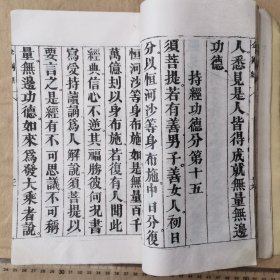 人悉見是人皆得成就無量無邊
功德
持經功德分第十五
須菩提若有善男子善女人初日
分以恒河沙等身布施中日分復
恒河沙等身布施如是無量百千
萬億劫以身布施若復有人聞此
經典信心不逆其福勝彼何況書
寫受持讀誦為人解說須菩提以
要言之是經有不可思議不可稱
量無邊功德如來為發大乘者說